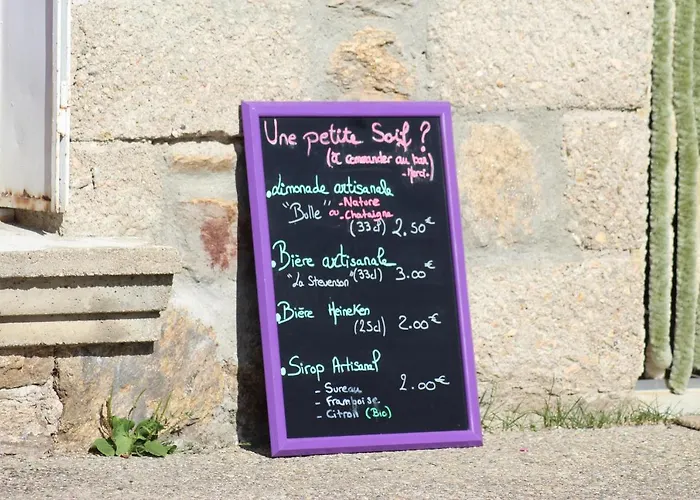 Une petite Soif ?
(à commander au bar)
- Merci.
• Limonade artisanale
"Bulle" - Nature
ou - Chataigne
(33cl) 2.50€
• Bière artisanale
"La Stevenson" (33cl) 3.00€
• Bière Heineken
(25cl) 2.00€
• Sirop Artisanal
2.00€
- Sureau
- Framboise
- Citron (Bio)